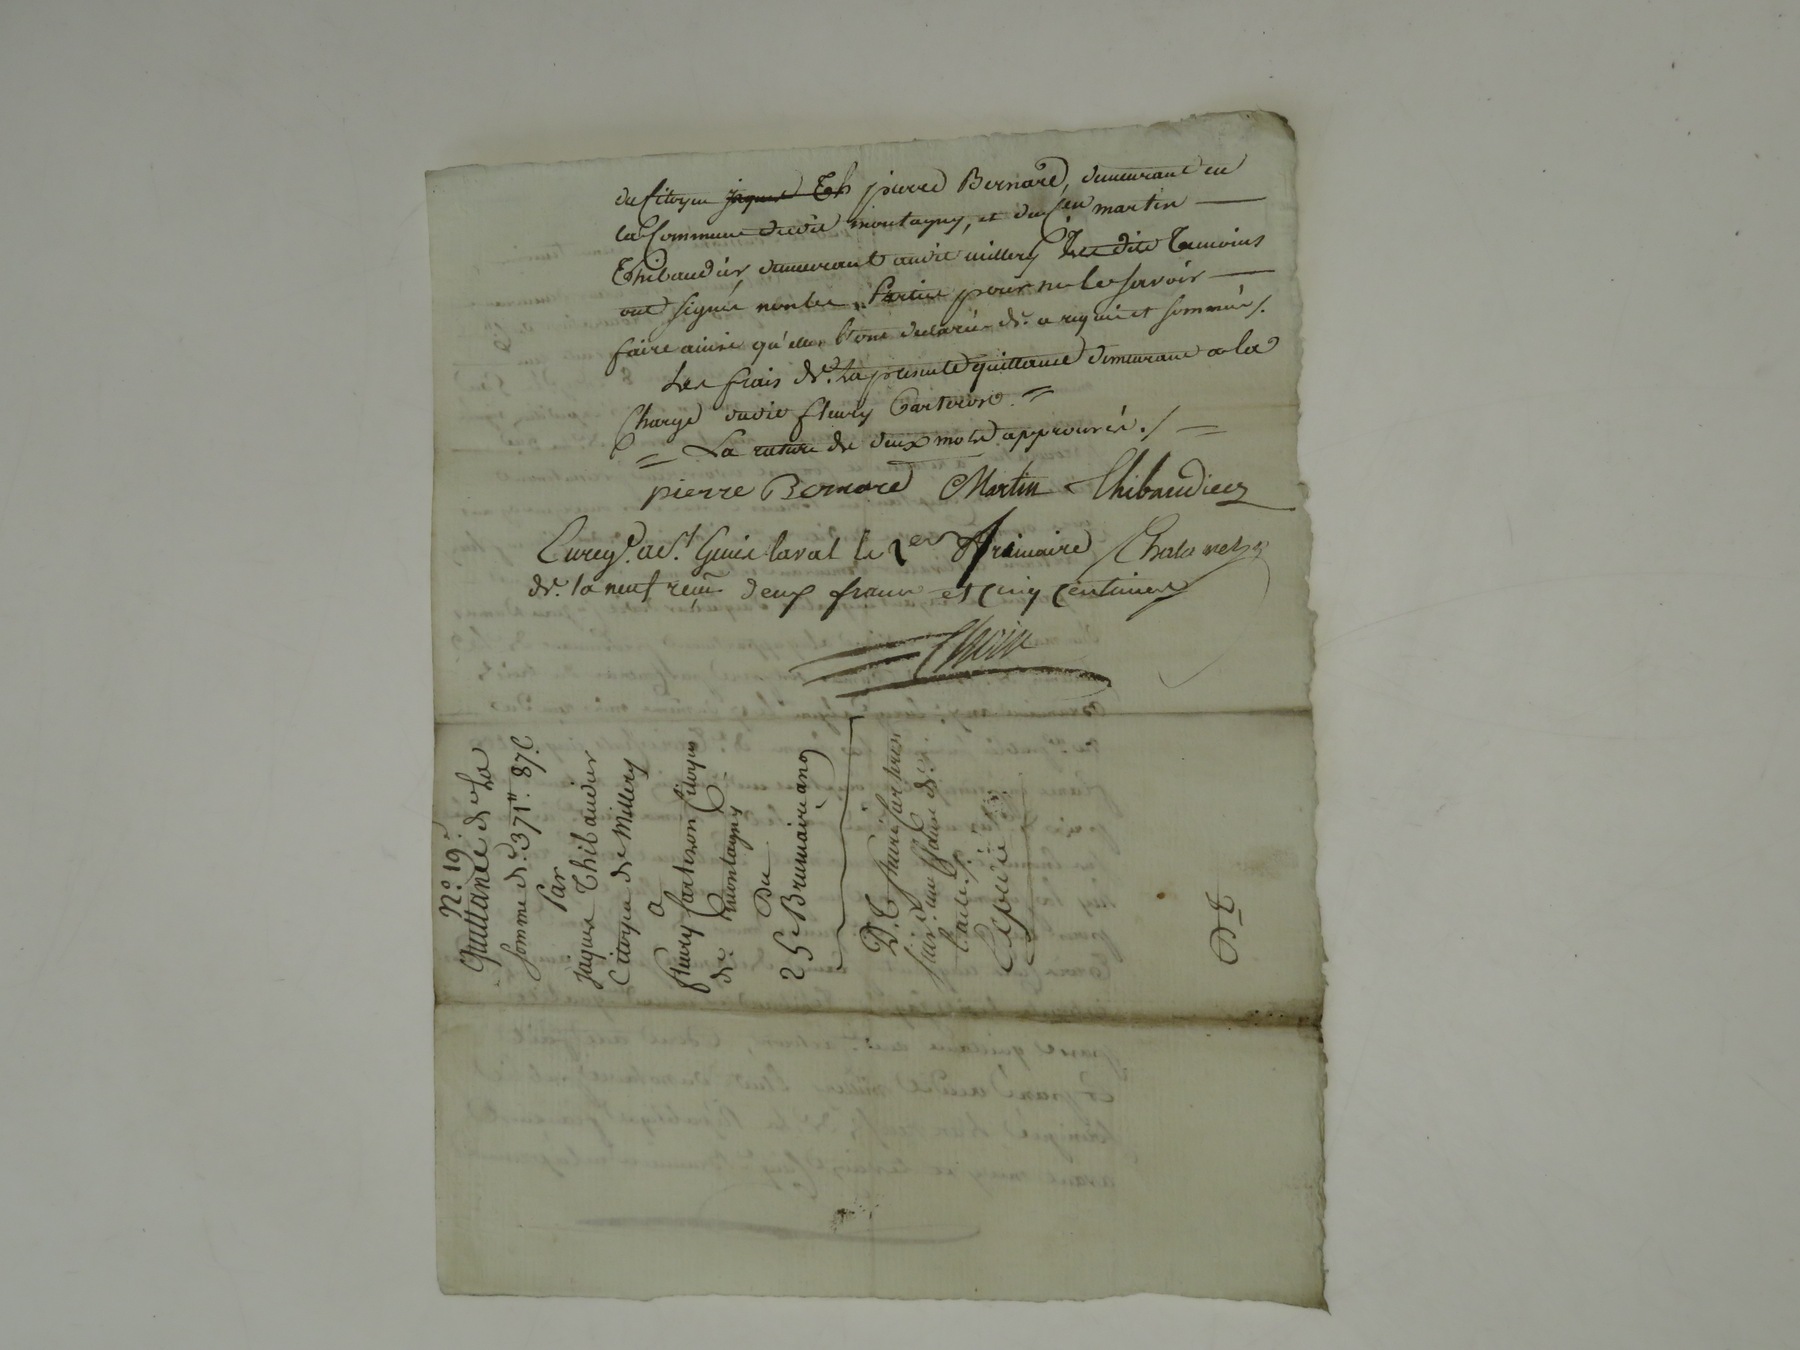 du Citoyen jaque Th pierre Bernard, demeurant en
la Commune dudit montagny, et du Cen martin
Thibaudier demeurant audit millery Les dits Temoins
ont signés non les Parties pour ne le savoir
faire ainsi qu'elles l'ont declaré de ce requis et sommés /.
Les frais de la presente quittance demeurant a la
Charge dudit fleury Carteron =
= La rature de deux mots approuvée ./ =
pierre Bernard Martin Thibaudier
Enregé a St Genis laval le 1er frimaire
de la neuf reçu deux francs et cinq centimes
No 19.
Quittance de La
somme de 371" 87 C
Par
Jaque Thibaudier
Citoyen de Millery
a
fleury Carteron Citoyen
de montagny
Du
25 Brumaire an 9
Expedié